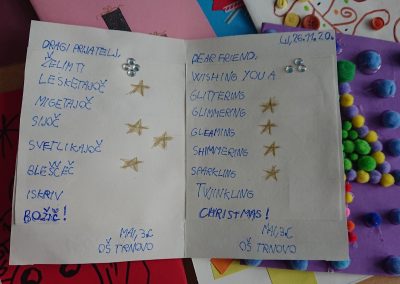 DRAGI PRIJATELJ,
ŽELIM TI
LESKETAJOČ
MIGETAJOČ
SIJOČ
SVETLIKAJOČ
BLEŠČEČ
ISKRIV
BOŽIČ!
MAJ, 3.C
OŠ TRNOVO
LJ, 26.11.20.
DEAR FRIEND,
WISHING YOU A
GLITTERING
GLIMMERING
GLEAMING
SHIMMERING
SPARKLING
TWINKLING
CHRISTMAS!
MAJ, 3.C
OŠ TRNOVO